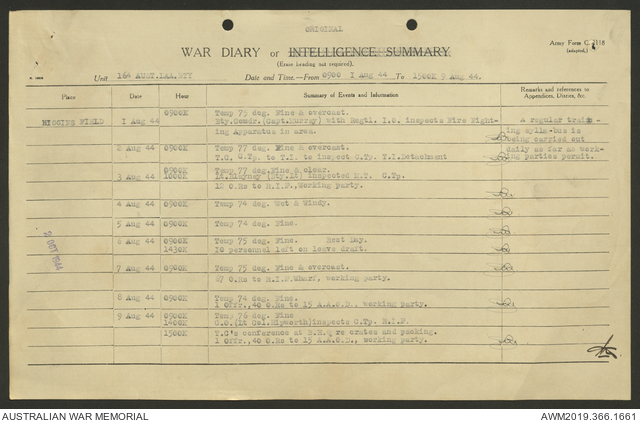 ORIGINAL
WAR DIARY or INTELLIGENCE SUMMARY
Army Form C. 2118
(adapted.)
(Erase heading not required).
Unit 164 AUST.LAA.BTY Date and Time.—From 0900 1 Aug 44 To 1500K 9 Aug 44.
Place Date Hour Summary of Events and Information Remarks and references to
Appendices, Diaries, &c.
HIGGINS FIELD 1 Aug 44 0900K Temp 75 deg. Fine & overcast.
Bty.Comdr.(Capt.Murray) with Regtl. I.O. inspects Fire Fight-
ing Apparatus in area.
A regular train-
ing sylla-bus is
being carried out
daily as far as work-
ing parties permit.
2 Aug 44 0900K Temp 77 deg. Fine & overcast.
T.C. G.Tp. to T.I. to inspect G.Tp. T.I.Detachment
3 Aug 44 0900K Temp 77 deg.Fine & clear.
1000K inspected M.T. G.Tp.
12 O.Rs to R.I.P.,Working party.
4 Aug 44 0900K Temp 74 deg. Wet & Windy.
5 Aug 44 0900K Temp 74 deg. Fine.
6 Aug 44 0900K Temp 75 deg. Fine. Rest Day.
1430K 10 personnel left on leave draft.
7 Aug 44 0900K Temp 75 deg. Fine & overcast.
47 O.Rs to R.I.P.Wharf, working party.
8 Aug 44 0900K Temp 74 deg. Fine.
1 offr.,40 O.Rs to 15 A.A.O.D., working party.
9 Aug 44 0900K Temp 76 deg. Fine
1400K C.O.(Lt Col.Hipworth)inspects G.Tp. R.I.P.
1500K T.C's conference at R.H.Q re crates and packing.
1 offr.,40 O.Rs to 15 A.A.O.D., working party.
OCT 1944
AUSTRALIAN WAR MEMORIAL
AWM2019.366.1661